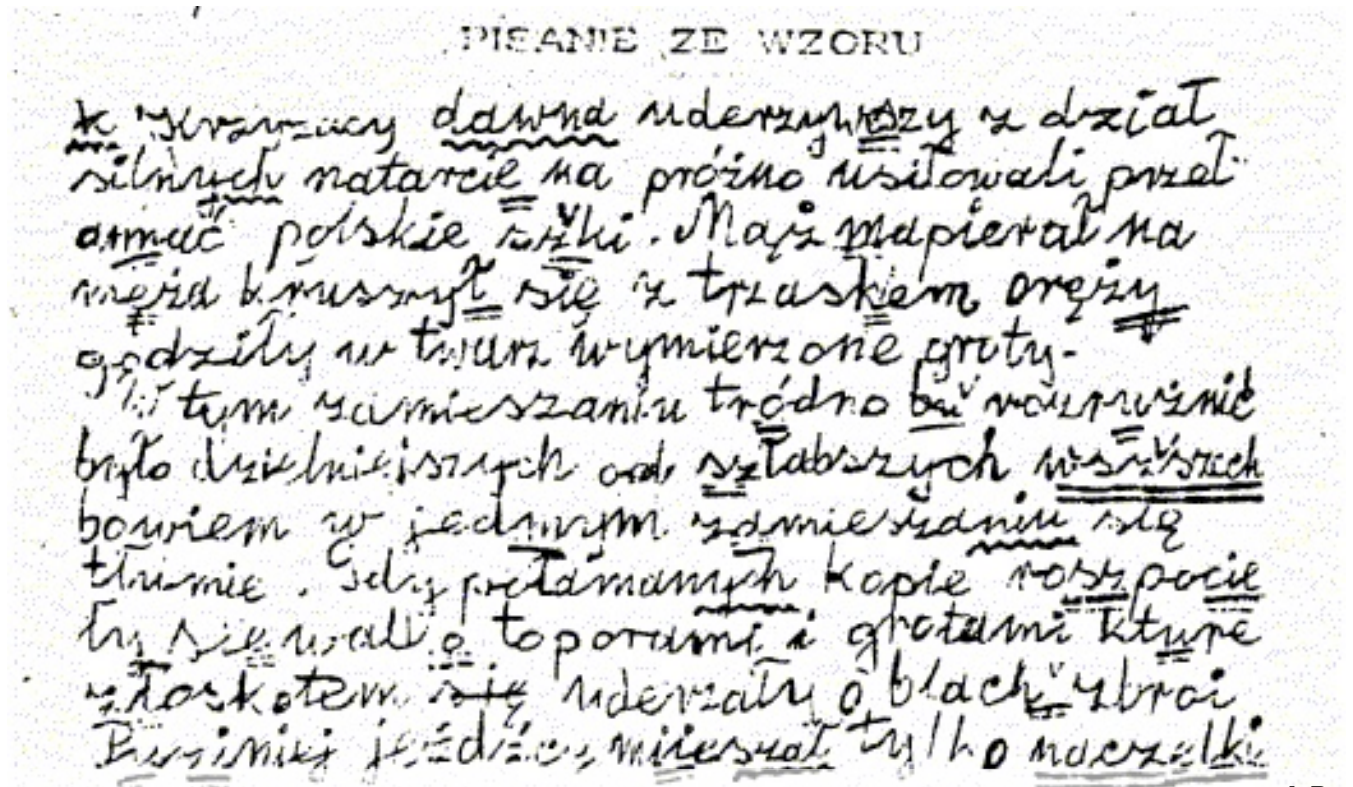 PISANIE ZE WZORU
dawna uderzywszy z dział
silnych natarcie na próżno usiłowali przeł
amać polskie szki. Mąż mapierał na
męża kruszył się z trzaskem oręży
godziły w twarz wymierzone groty.
W tym zamieszaniu tródno był rozružnić
było dzielniejszych od szłabszych wszẙszech
bowiem w jednym zamieszaniu się
tłumie. Gdy połamanych kopie roszpocie
ły się wal o toporami i grotami kture
złoskotem się uderzały o blach zbroi
jeźdźcy miieszał tylko naczelki